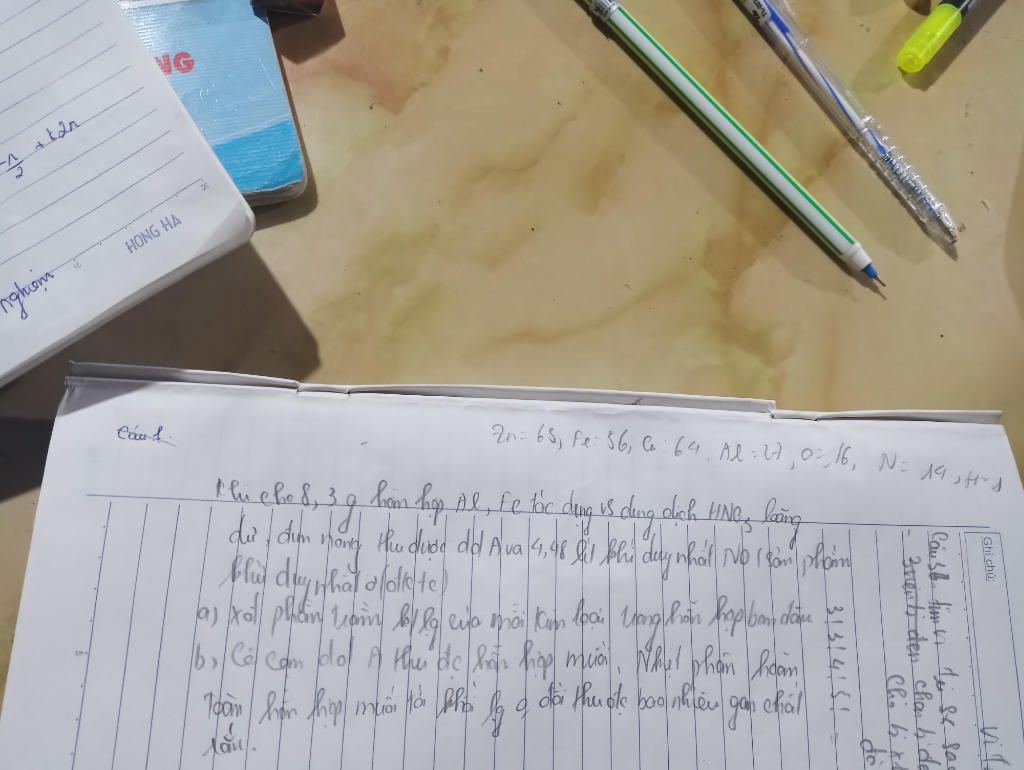 NG
-π/2 + k2π
HONG HA
nghiệm
Câu 1.
Zn = 65, Fe = 56, Cu = 64, Al = 27, O = 16, N = 14, H = 1
Khi cho 8,3 g hỗn hợp Al, Fe tác dụng vs dung dịch HNO3 loãng
dư, đun nóng thu được dd A và 4,48 lít khí duy nhất NO (sản phẩm
khử duy nhất ở đktc)
a) xđ phần trăm k/lg của mỗi kim loại trong hỗn hợp ban đầu
b, Cô cạn dd A thu đc hỗn hợp muối. Nhiệt phân hoàn
toàn hỗn hợp muối tới khối lg g đổi thu đc bao nhiêu gam chất
rắn.
Ghi chú: